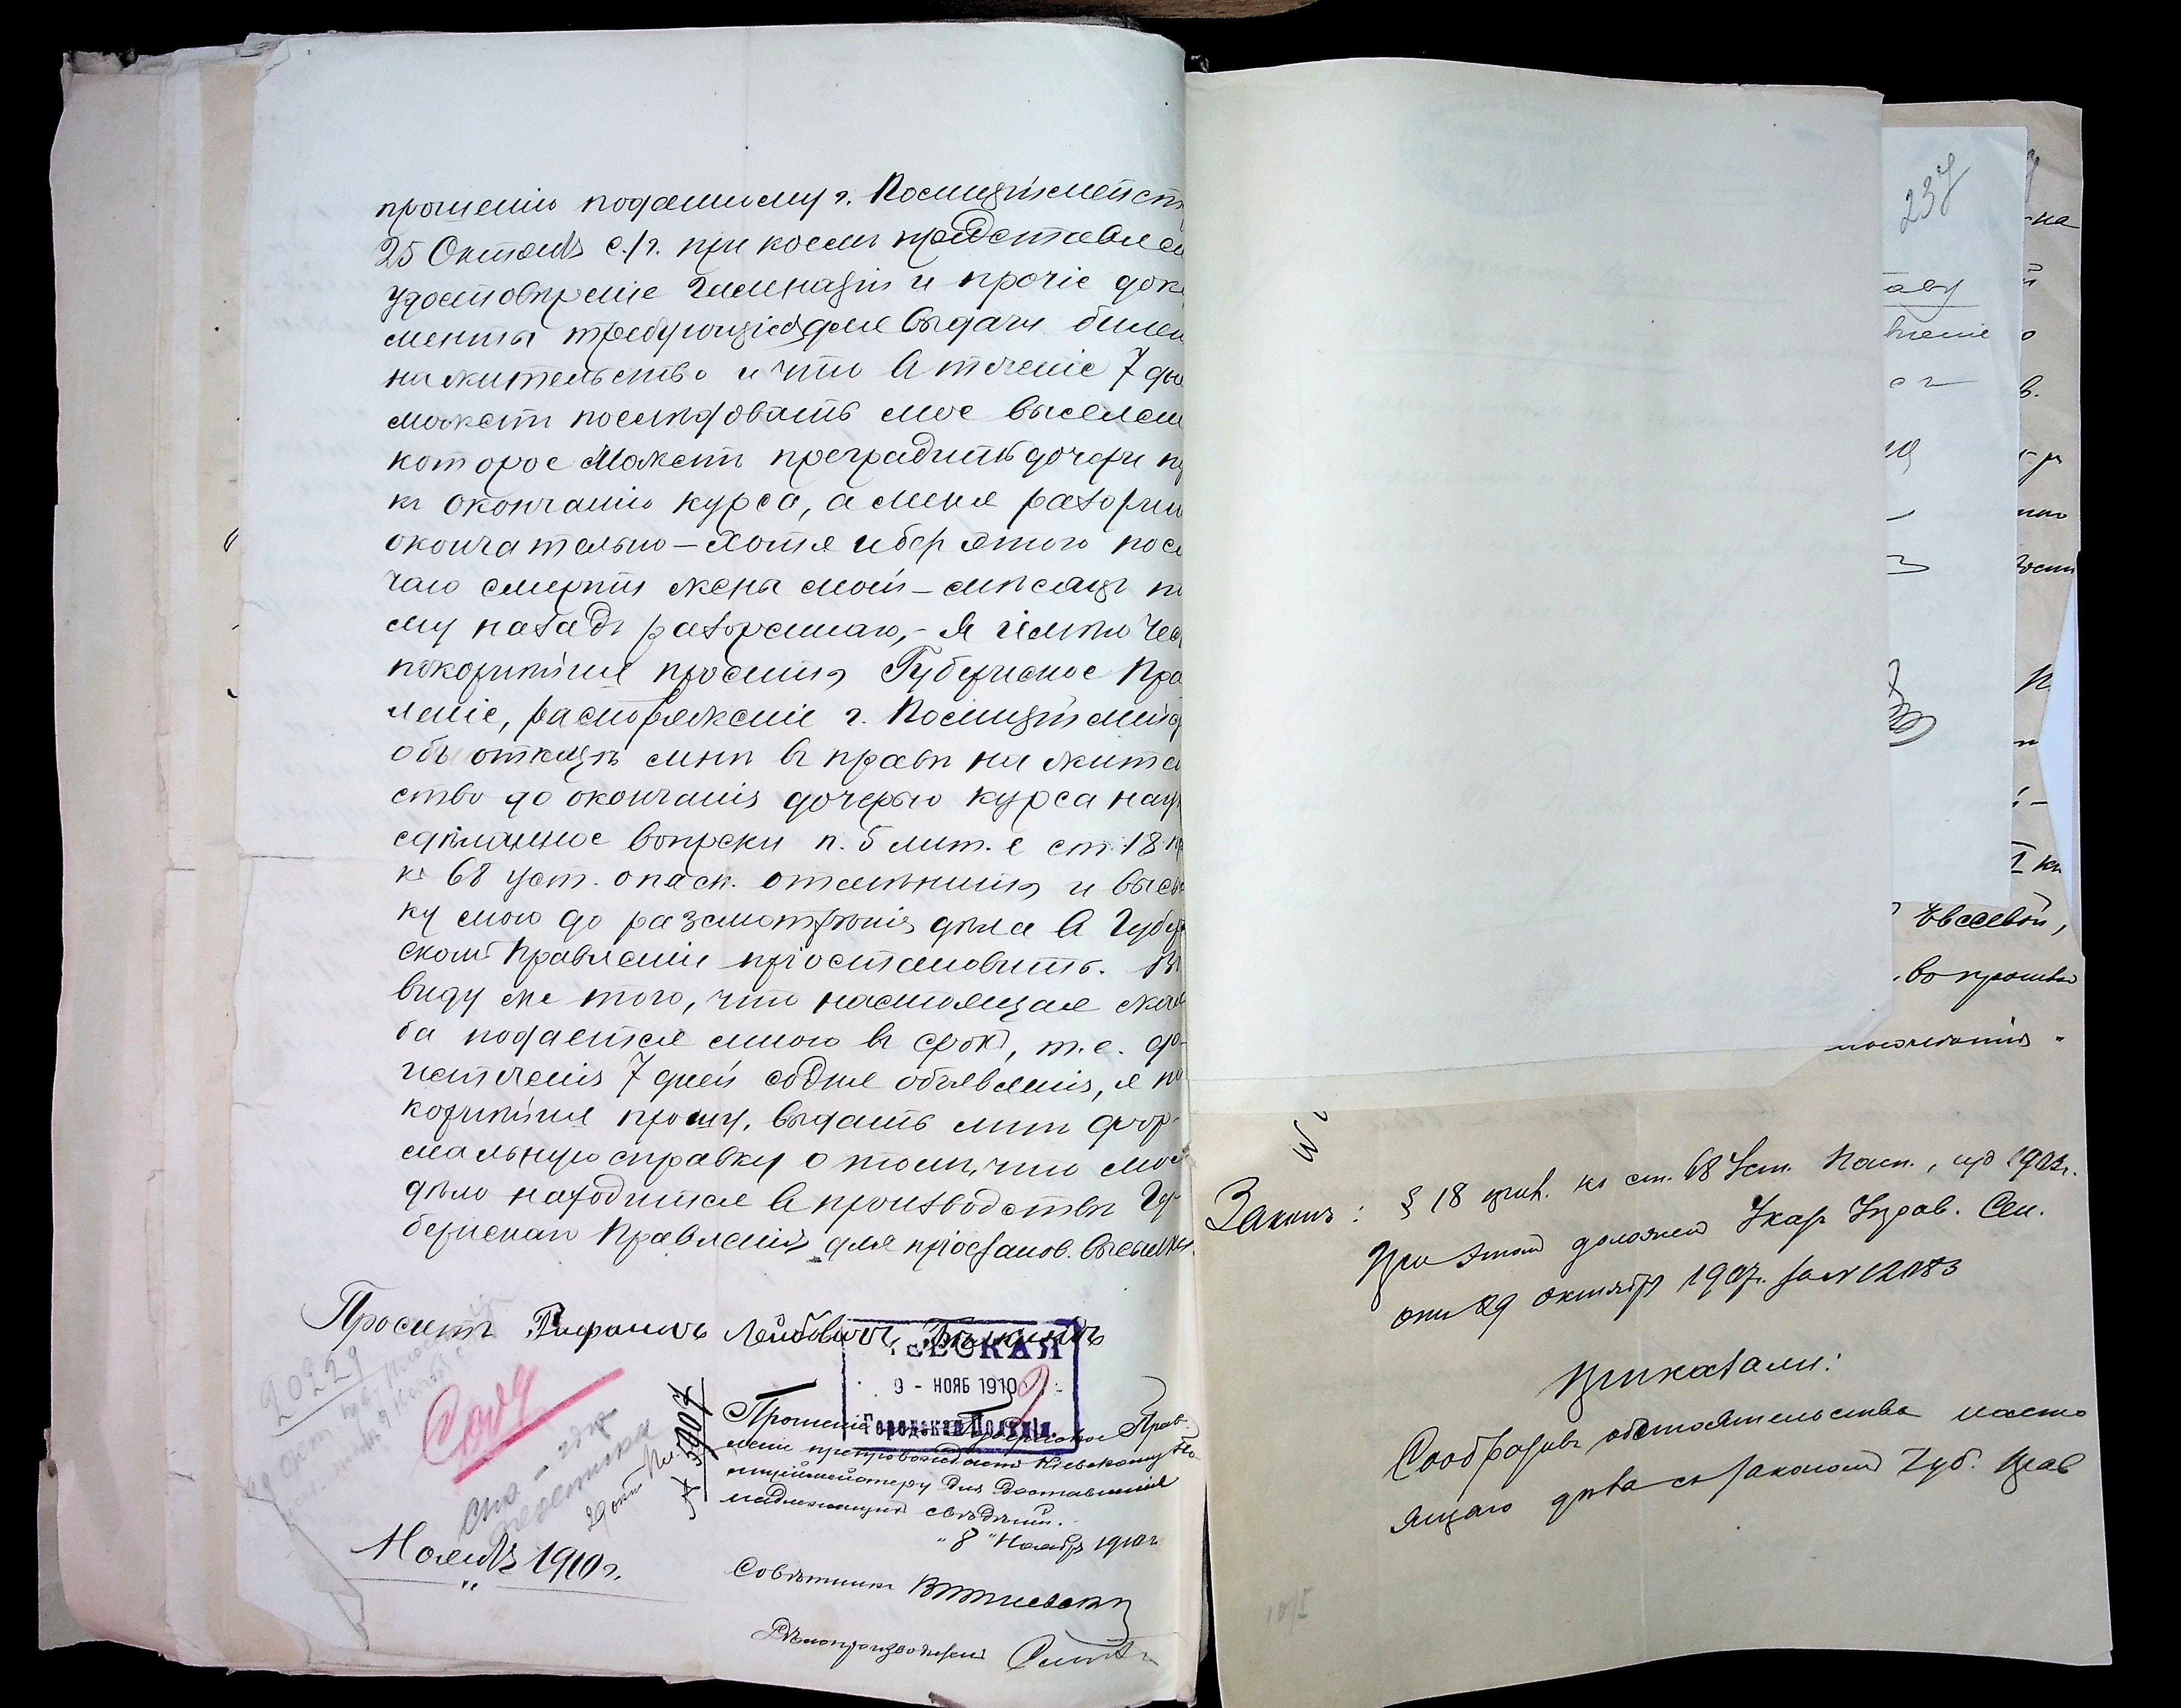 прошенію поданному г. Полиціймейст
25 Октября с./г. при коемъ представлен
удостовѣреніе Гимназіи и прочіе док
менты требующіеся для выдачи билет
на жительство и что въ теченіе 7 дн
можетъ послѣдовать мое выселені
которое можетъ преградить дочери пу
къ окончанію курса, а меня разори
окончательно – хотя и безъ этого посл
чаю смерти жены моей – мѣсяцъ то
му назадъ разореннаго, – Я имѣю чес
покорнѣйше просить Губернское Пра
леніе, распоряженіе г. Полиціймейс
объ отказѣ мнѣ въ правѣ на жител
ство до окончанія дочерью курса наук
сдѣланное вопреки п. 5 лит. е ст. 18 п
къ 68 уст. о пасп. отмѣнить и высыл
ку мою до разсмотрѣнія дѣла въ Губер
скомъ Правленіи пріостановить. Въ
виду же того, что настоящая жало
ба подается мною въ срокъ, т.е. до
истеченія 7 дней со дня объявленія, я по
корнѣйше прошу, выдать мнѣ фор-
мальную справку о томъ, что мое
дѣло находится въ производствѣ Гу-
бернскаго Правленія для пріостанов. высылки.
Проситъ Рафаилъ Лейбовичъ
20229
СКАЯ
9 - НОЯБ 1910
Городская Полиція.
Прошеніе Губернское Прав-
леніе препровождаетъ Кіевскому По-
лиціймейстеру для доставленія
надлежащихъ свѣдѣній.
"8" Ноября 1910 г.
Ноября 1910 г.
Совѣтникъ
Дѣлопроизводитель
237
Евсеевой,
Законъ: § 18 прил. къ ст. 68 Уст. Пасп., изд. 1903 г.
При этомъ доложенъ Указъ Прав. Сен.
отъ 29 октября 1907 г. за №12183
Приказали:
Сообразивъ обстоятельства насто
ящаго дѣла съ закономъ Губ. Прав